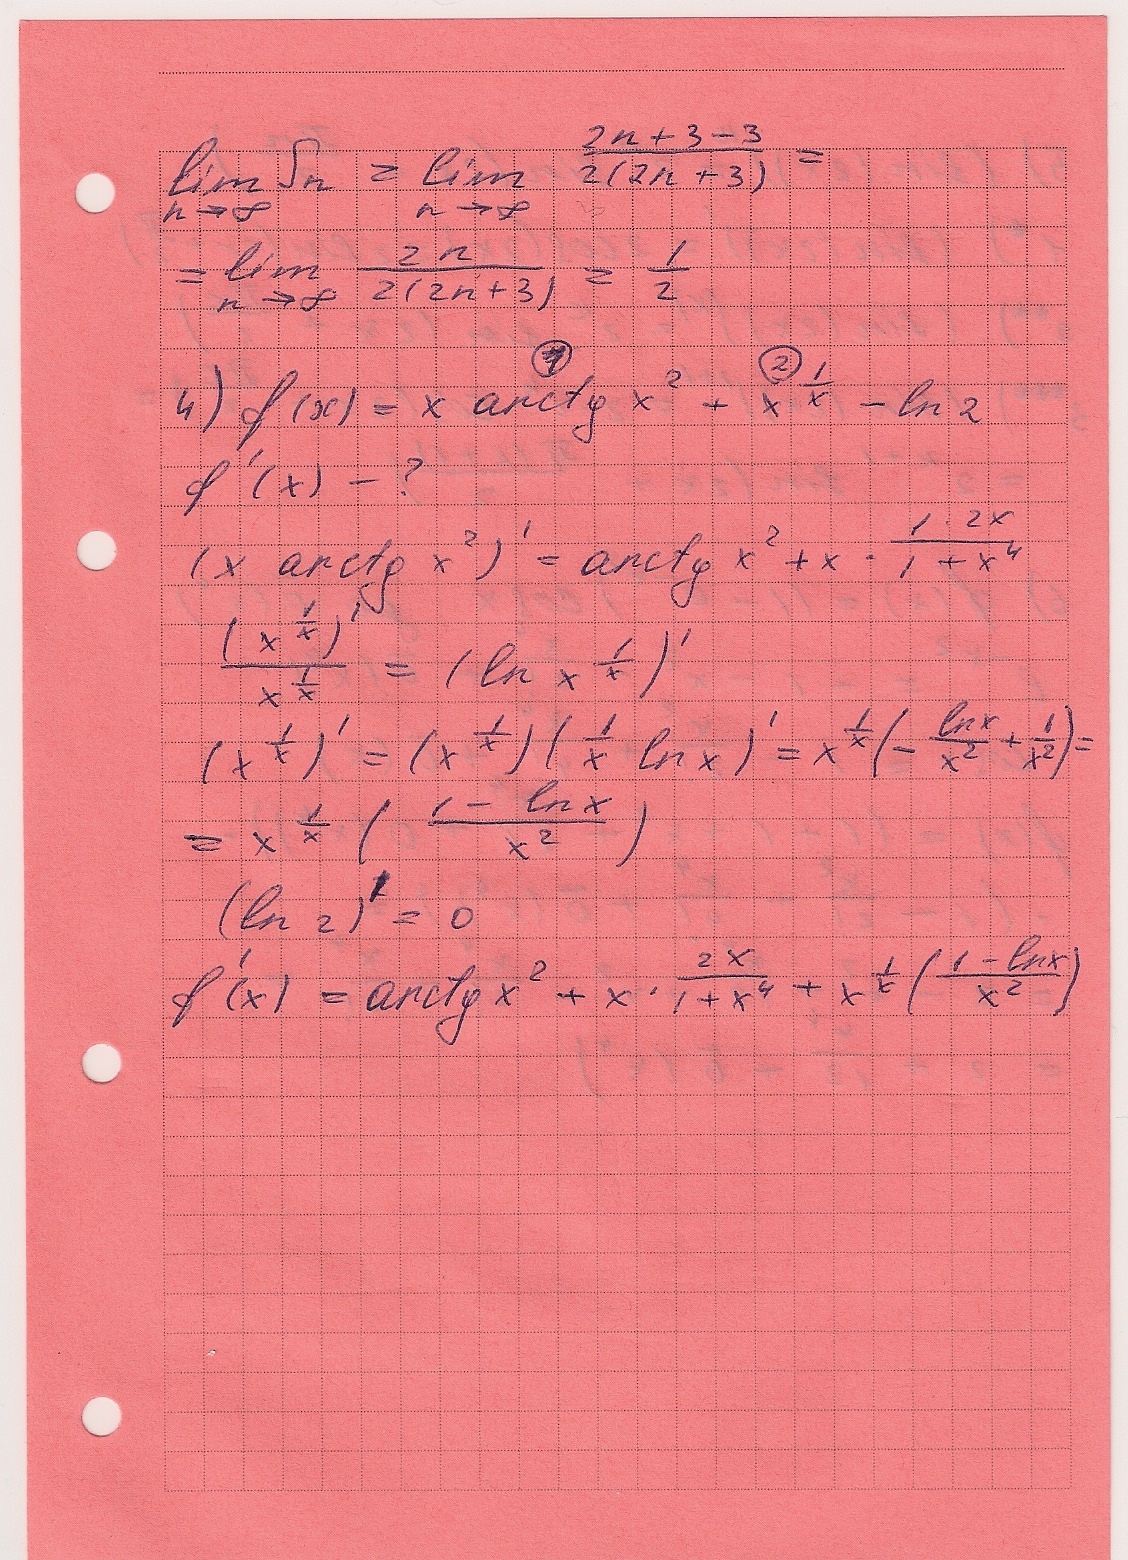 lim Sn = lim (2n + 3 - 3)/(2(2n + 3)) =
n→∞ n→∞
= lim 2n/(2(2n+3)) = 1/2
n→∞
① ②
4) f(x) = x arctg x² + x^(1/x) - ln 2
f'(x) - ?
(x arctg x²)' = arctg x² + x · (1 · 2x)/(1 + x⁴)
(x^(1/x))'/x^(1/x) = (ln x^(1/x))'
(x^(1/x))' = (x^(1/x))(1/x ln x)' = x^(1/x)(- ln x/x² + 1/x²) =
= x^(1/x) ((1 - ln x)/x²)
(ln 2)' = 0
f'(x) = arctg x² + x · 2x/(1 + x⁴) + x^(1/x) ((1 - ln x)/x²)